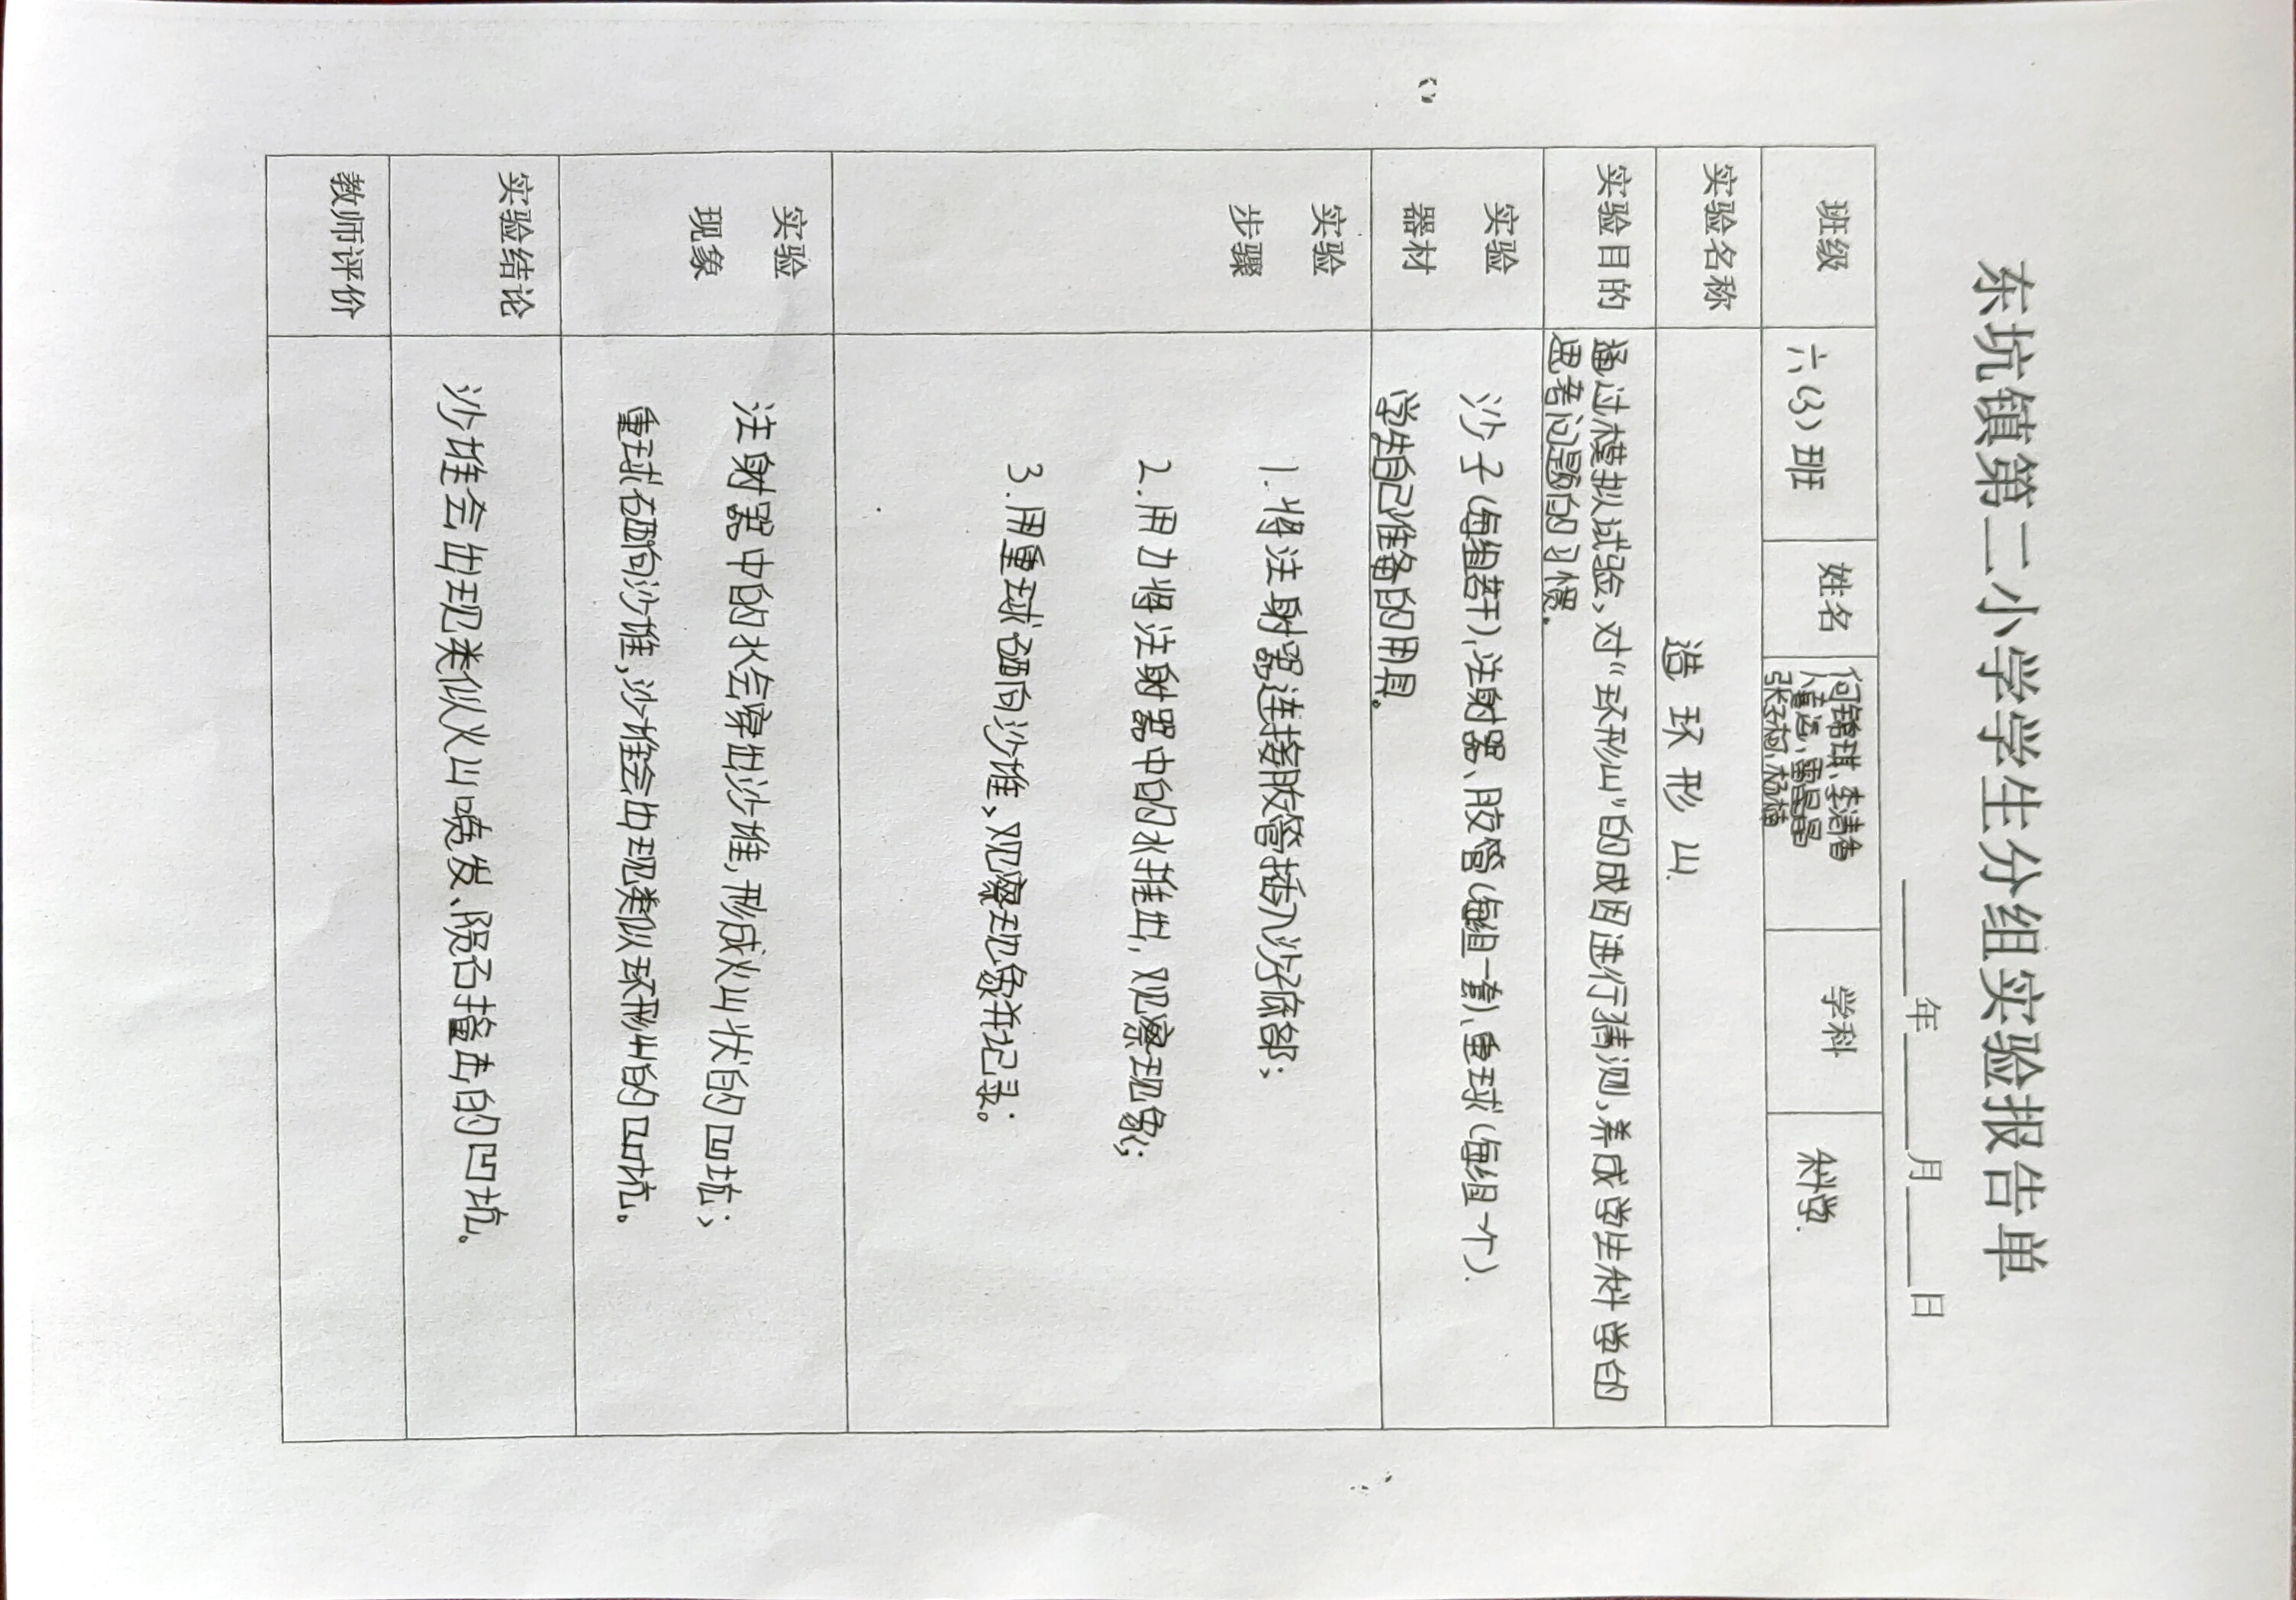 东坑镇第二小学学生分组实验报告单
年 月 日
班级 六(3)班 姓名 何锦琪、李清香 学科 科学.
雷晶晶
张子柯、杨楠
实验名称 造环形山.
实验目的 通过模拟试验,对“环形山”的成因进行猜测,养成学生科学的
思考问题的习惯。
实验 沙子(每组若干)、注射器、胶管(每组一套)、重球(每组一个).
器材 学生自己准备的用具。
实验
步骤
1.将注射器连接胶管插入沙子底部;
2.用力将注射器中的水推出,观察现象;
3.用重球砸向沙堆、观察现象并记录。
实验
现象
注射器中的水会穿出沙堆,形成火山状的凹坑;
重球在砸向沙堆,沙堆会出现类似环形山的凹坑。
实验结论 沙堆会出现类似火山喷发、陨石撞击的凹坑。
教师评价